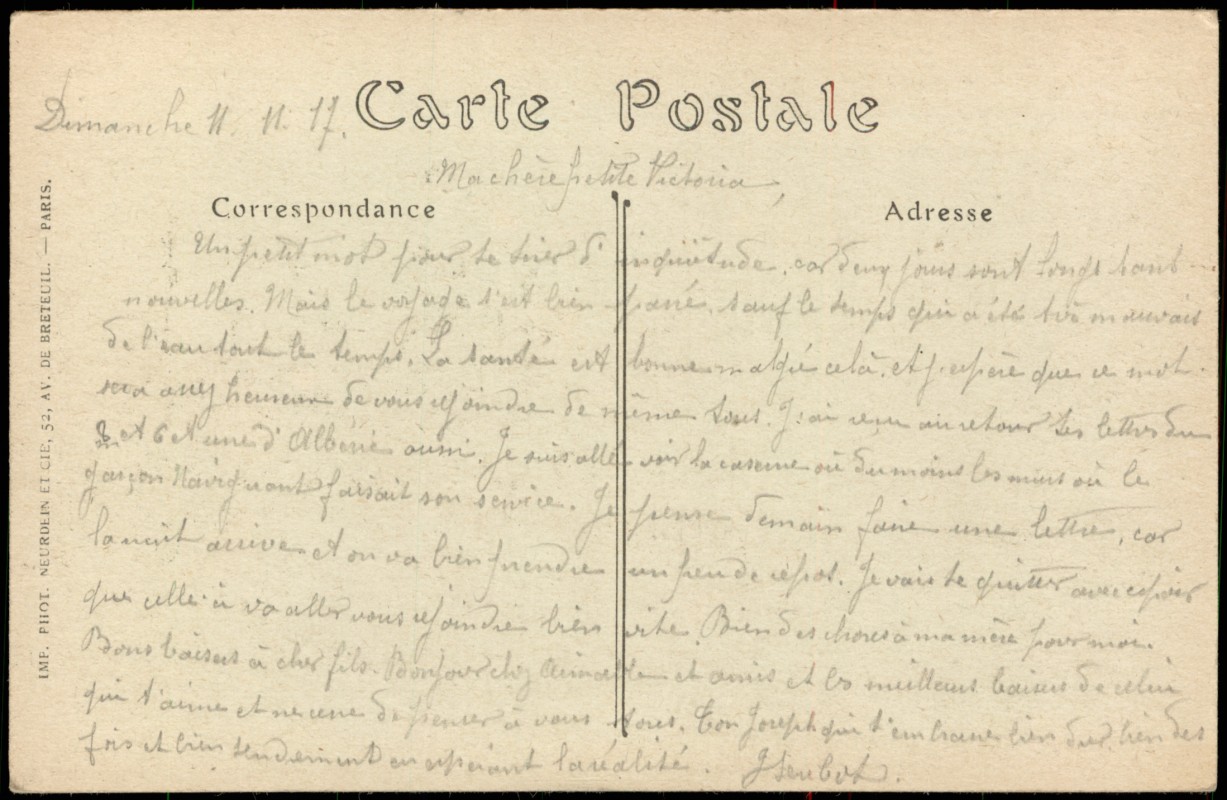 Dimanche 11. 11. 17.
Carte Postale
Ma chère petite Victoria,
Correspondance
Adresse
Un petit mot pour te tirer d'inquiétude, car deux jours sont longs sans
nouvelles. Mais le voyage s'est bien passé, sauf le temps qui a été très mauvais
de l'eau tout le temps. La santé est bonne malgré celà, et j'espère que ce mot
sera assez heureux de vous rejoindre de même tous. J'ai reçu au retour tes lettres du
et 6 et une d'Albérie aussi. Je suis allé voir la caserne où du moins les murs où le
garçon Navignant faisait son service. Je pense demain faire une lettre, car
la nuit arrive et on va bien prendre un peu de repos. Je vais te quitter avec espoir
que celle-ci va aller vous rejoindre bien vite. Bien des choses à ma mère pour moi.
Bons baisers à cher fils. Bonjour chez Aimable et amis et les meilleurs baisers de celui
qui t'aime et ne cesse de penser à vous tous. Ton Joseph qui t'embrasse bien dur bien des
fois et bien tendrement en espérant la réalité.
IMP. PHOT. NEURDEIN ET CIE, 52, AV. DE BRETEUIL. — PARIS.